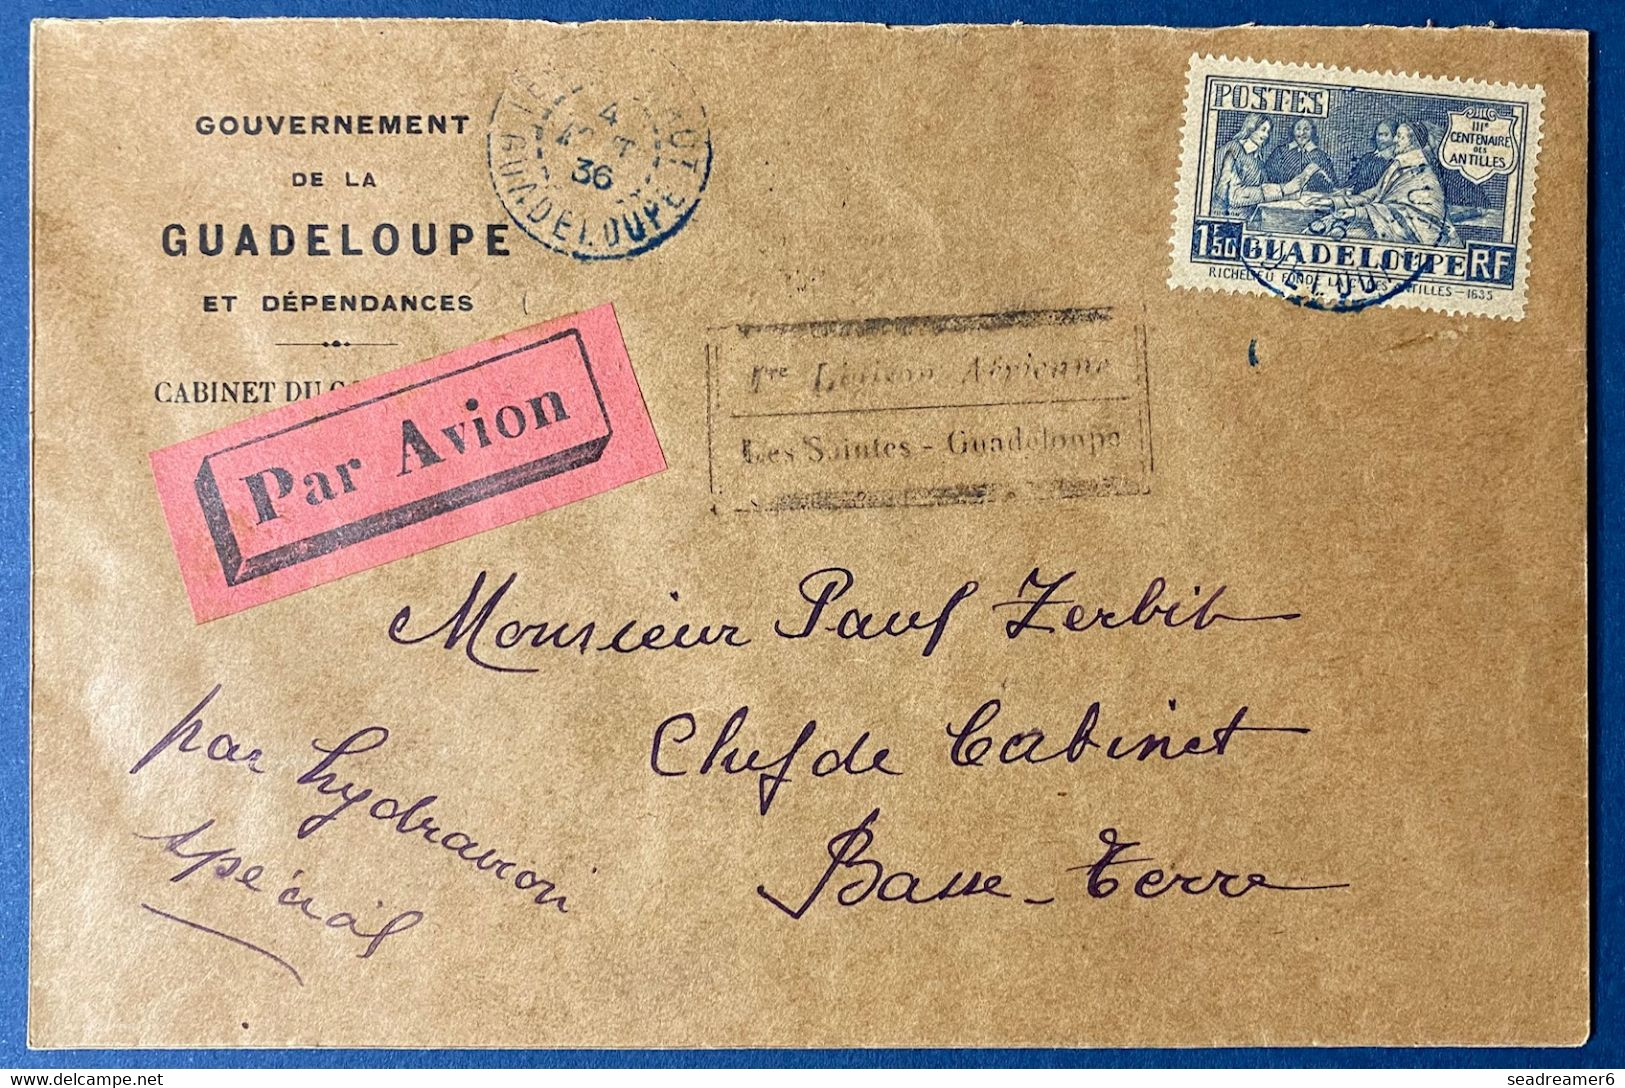 GOUVERNEMENT
DE LA
GUADELOUPE
ET DÉPENDANCES
CABINET DU
Par Avion
4
36
GUADELOUPE
POSTES
IIIᵉ
CENTENAIRE
DES
ANTILLES
1ᶠ50 GUADELOUPE RF
RICHELIEU FONDE LA Cⁱᵉ DES ANTILLES - 1635
1re Liaison Aérienne
Les Saintes - Guadeloupe
Monsieur Paul Zerbib
Chef de Cabinet
Basse-Terre
par hydravion
spécial
seadreamer6